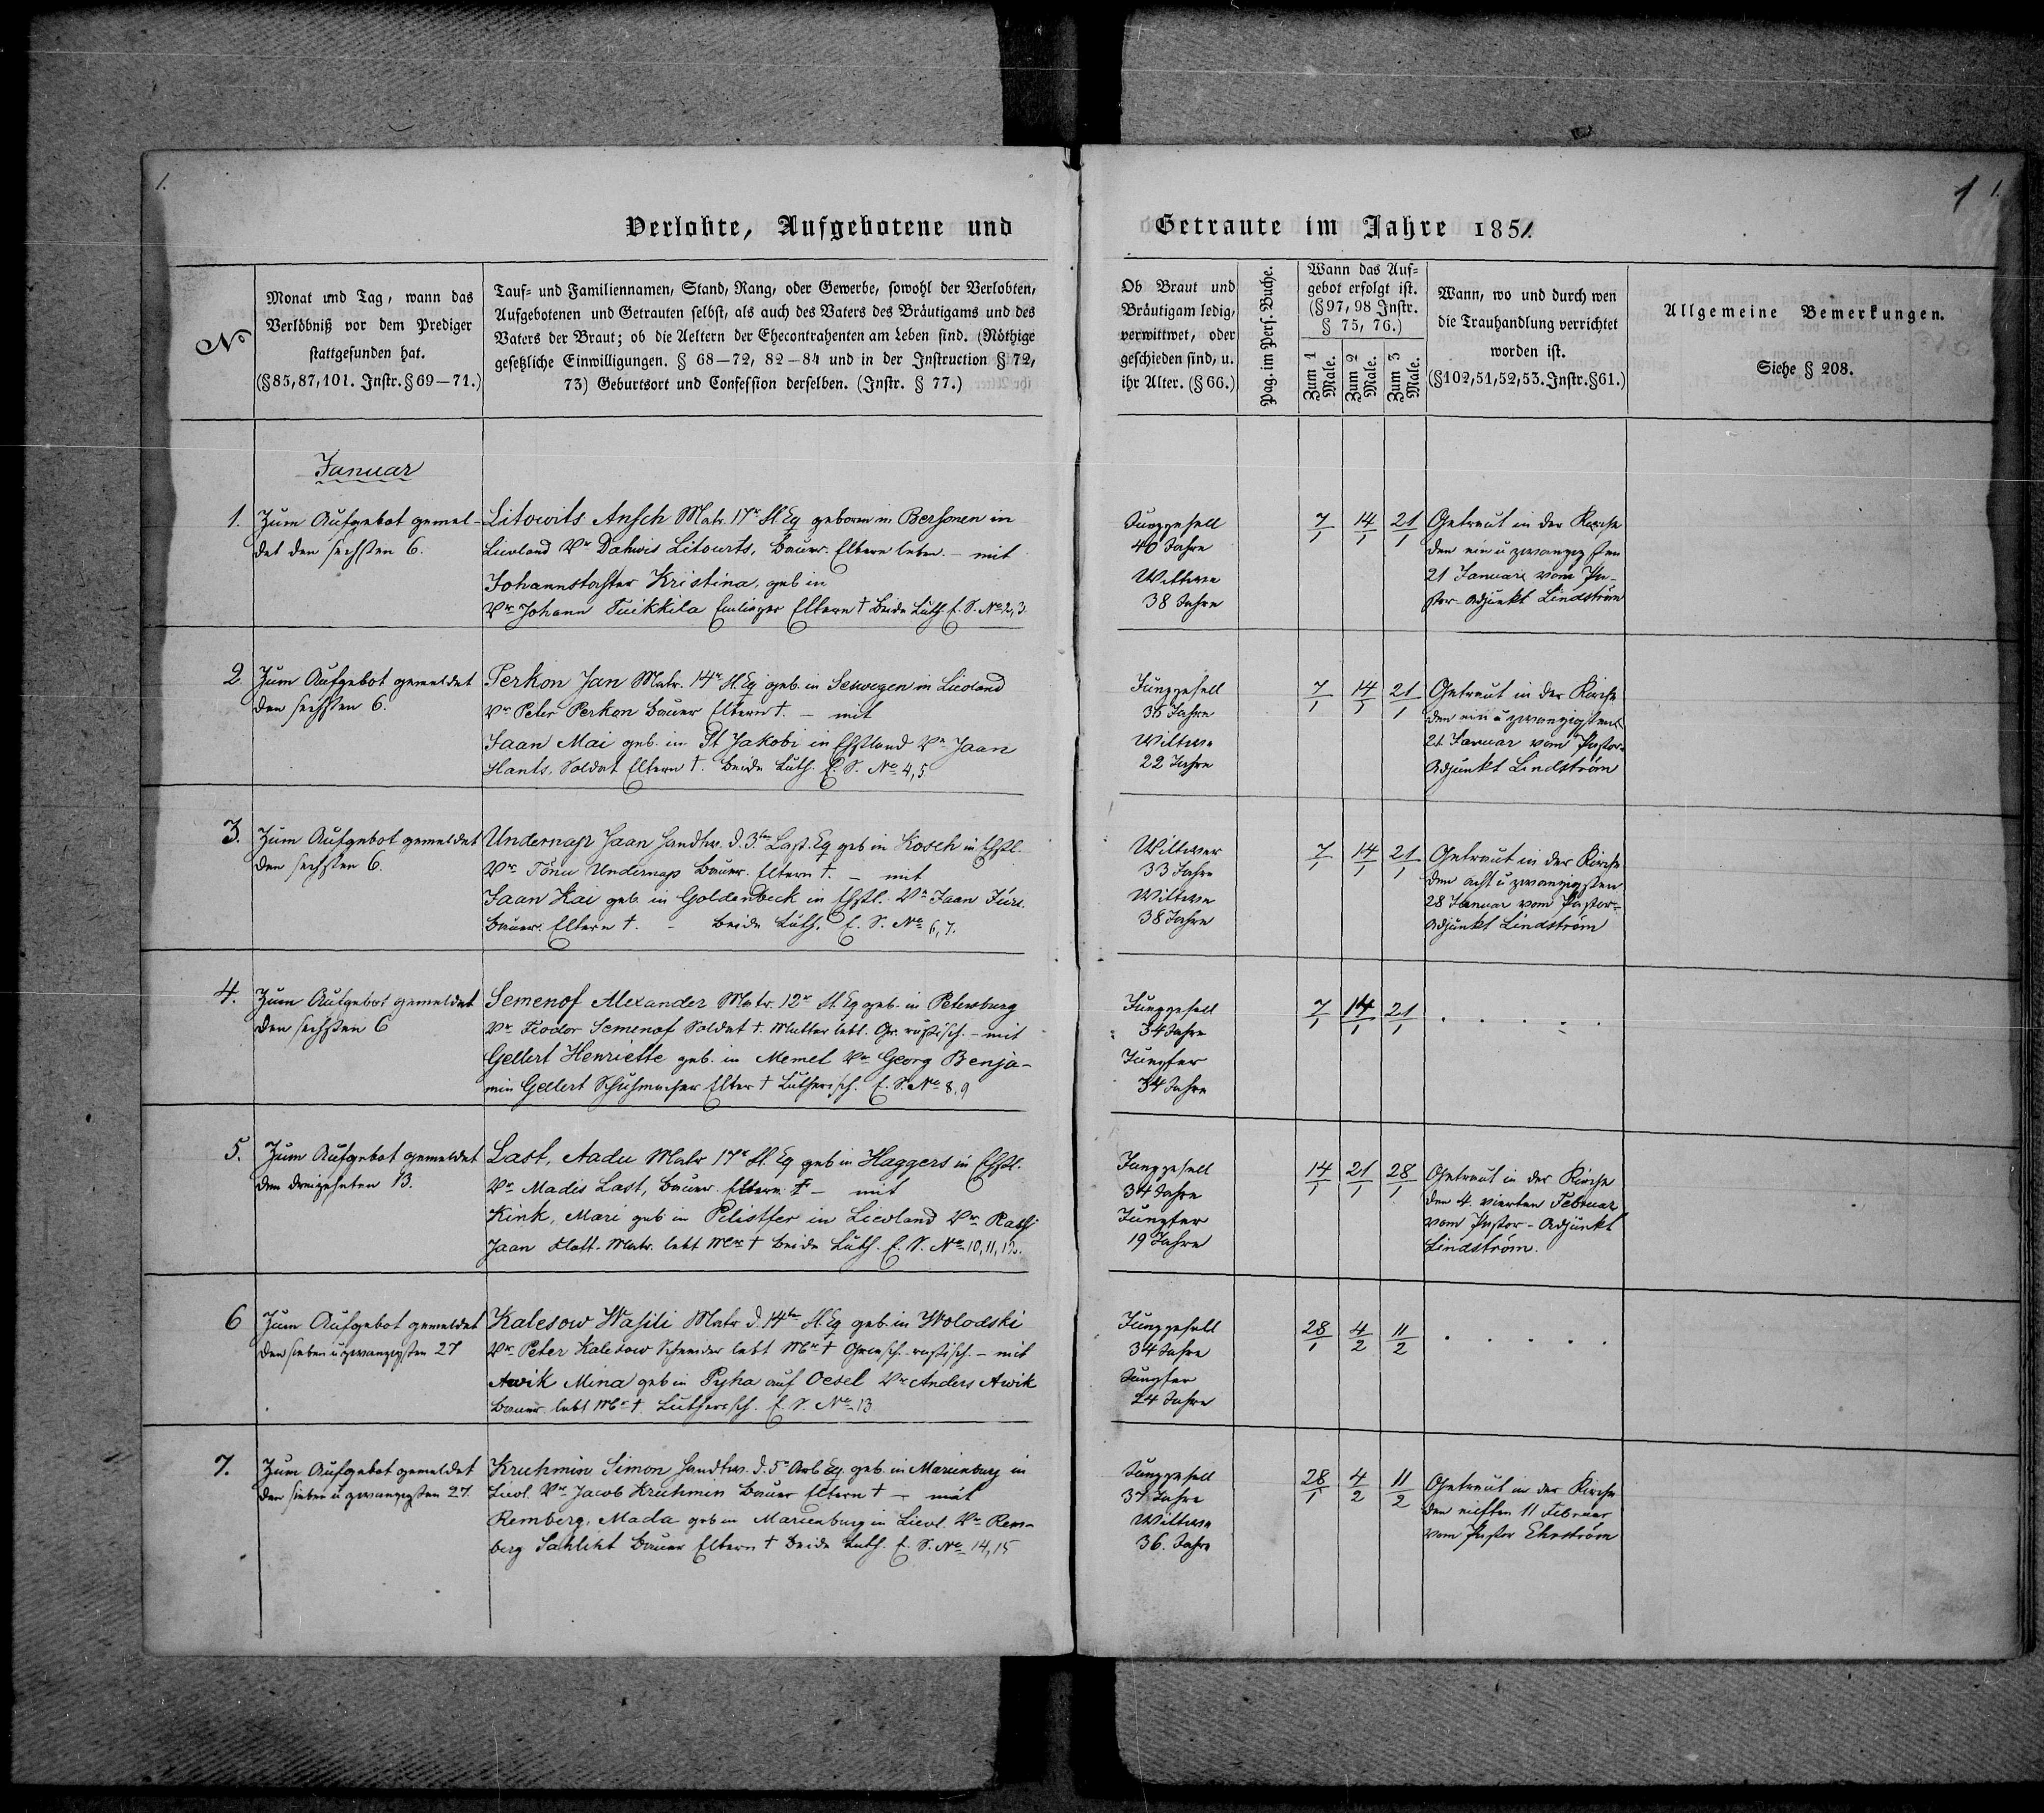 1.
1 1.
Verlobte, Aufgebotene und
Getraute im Jahre 1851.
No
Monat und Tag, wann das
Verlöbniß vor dem Prediger
stattgefunden hat.
(§ 85, 87, 101. Instr. § 69—71.)
Tauf- und Familiennamen, Stand, Rang, oder Gewerbe, sowohl der Verlobten,
Aufgebotenen und Getrauten selbst, als auch des Vaters des Bräutigams und des
Vaters der Braut; ob die Aeltern der Ehecontrahenten am Leben sind. (Nöthige
gesetzliche Einwilligungen. § 68—72, 82—84 und in der Instruction § 72,
73) Geburtsort und Confession derselben. (Instr. § 77.)
Ob Braut und
Bräutigam ledig,
verwittwet, oder
geschieden sind, u.
ihr Alter. (§ 66.)
Pag. im Pers. Buche.
Wann das Auf=
gebot erfolgt ist.
(§ 97, 98 Instr.
§ 75, 76.)
Zum 1 Male.
Zum 2 Male.
Zum 3 Male.
Wann, wo und durch wen
die Trauhandlung verrichtet
worden ist.
(§ 102, 51, 52, 53. Instr. § 61.)
Allgemeine Bemerkungen.
Siehe § 208.
Januar
1. Zum Aufgebot gemel-
det den sechsten 6.
Litowits Ansch Matr. 17r Fl Eq geboren in Bersonen in
Lievland Vr Dahwis Litowits, Bauer. Eltern leben. – mit
Johannstochter Kristina, geb in
Vr Johann Tuikkila Eltern † Beide Luth. E. S. No 2, 3.
Junggesell
40 Jahre
Wittwe
38 Jahre
7/1 14/1 21/1
Getraut in der Kirche
den ein u zwanzigsten
21 Januar vom Pa-
stor-Adjunkt Lindström
2 Zum Aufgebot gemeldet
den sechsten 6.
Perkon Jan Matr. 14r Fl. Eq geb. in Seswegen in Lievland
Vr Peter Perkon Bauer Eltern †. – mit
Jaan Mai geb. in St Jakobi in Ehstland Vr Jaan
Hants, Soldat Eltern †. Beide Luth. E. S. No 4, 5
Junggesell
36 Jahre
Wittwe
22 Jahre
7/1 14/1 21/1
Getraut in der Kirche
den ein u zwanzigsten
21 Januar vom Pastor-
Adjunkt Lindström
3. Zum Aufgebot gemeldet
den sechsten 6.
Undernass Jaan Handw. d. 3ten Last. Eq geb in Kosch in Ehstl.
Vr Tönu Undernass Bauer. Eltern †. – mit
Jaan Kai geb. in Goldenbeck in Ehstl. Vr Jaan Jürs.
Bauer. Eltern †. – Beide Luth. E. S. No 6, 7.
Wittwer
33 Jahre
Wittwe
38 Jahre
7/1 14/1 21/1
Getraut in der Kirche
den acht u zwanzigsten
28 Januar vom Pastor-
Adjunkt Lindström
4. Zum Aufgebot gemeldet
den sechsten 6
Semenof Alexander Matr. 12r Fl. Eq geb. in Petersburg
Vr Feodor Semenof Soldat †. Mutter lebt. Gr. russisch. – mit
Gellert Henriette geb. in Memel Vr Georg Benja-
min Gellert Schuhmacher Elter † Lutherisch. E. S. No 8, 9
Junggesell
34 Jahre
Jungfer
34 Jahre
7/1 14/1 21/1
. . . . .
5. Zum Aufgebot gemeldet
den dreizehnten 13.
Last, Aadu Matr 17r Fl. Eq geb in Haggers in Ehstl.
Vr Madis Last, Bauer. Eltern † – mit
Kink, Mari geb in Pilistfer in Lievland Vr
Jaan Matr. lebt Mr † Beide Luth. E. S. No 10, 11, 12.
Junggesell
34 Jahre
Jungfer
19 Jahre
14/1 21/1 28/1
Getraut in der Kirche
den 4. vierten Februar
vom Pastor-Adjunkt
Lindström.
6 Zum Aufgebot gemeldet
den sieben u zwanzigsten 27
Kalesow Wasili Matr d. 14ten Fl. Eq geb. in Wolodski
Vr Peter Kalesow Schneider lebt Mr † Griesch.-russisch. – mit
Awik Mina geb in Pyha auf Oesel Vr Anders Awik
Bauer. lebt Mr †. Lutherisch. E. S. No 13
Junggesell
34 Jahre
Jungfer
24 Jahre
28/1 4/2 11/2
. . . . .
7. Zum Aufgebot gemeldet
den sieben u zwanzigsten 27.
Kruhmin Simon Handw. d. 5n Arb Eq. geb. in Marienburg in
Lievl. Vr Jacob Kruhmin Bauer Eltern † – mit
Remberg, Mada geb in Marienburg in Lievl. Vr Rem-
berg Sahlikt Bauer Eltern † Beide Luth. E. S. No 14, 15
Junggesell
37 Jahre
Wittwe
36. Jahre
28/1 4/2 11/2
Getraut in der Kirche
den eilften 11 Februar
vom Pastor Ehrström